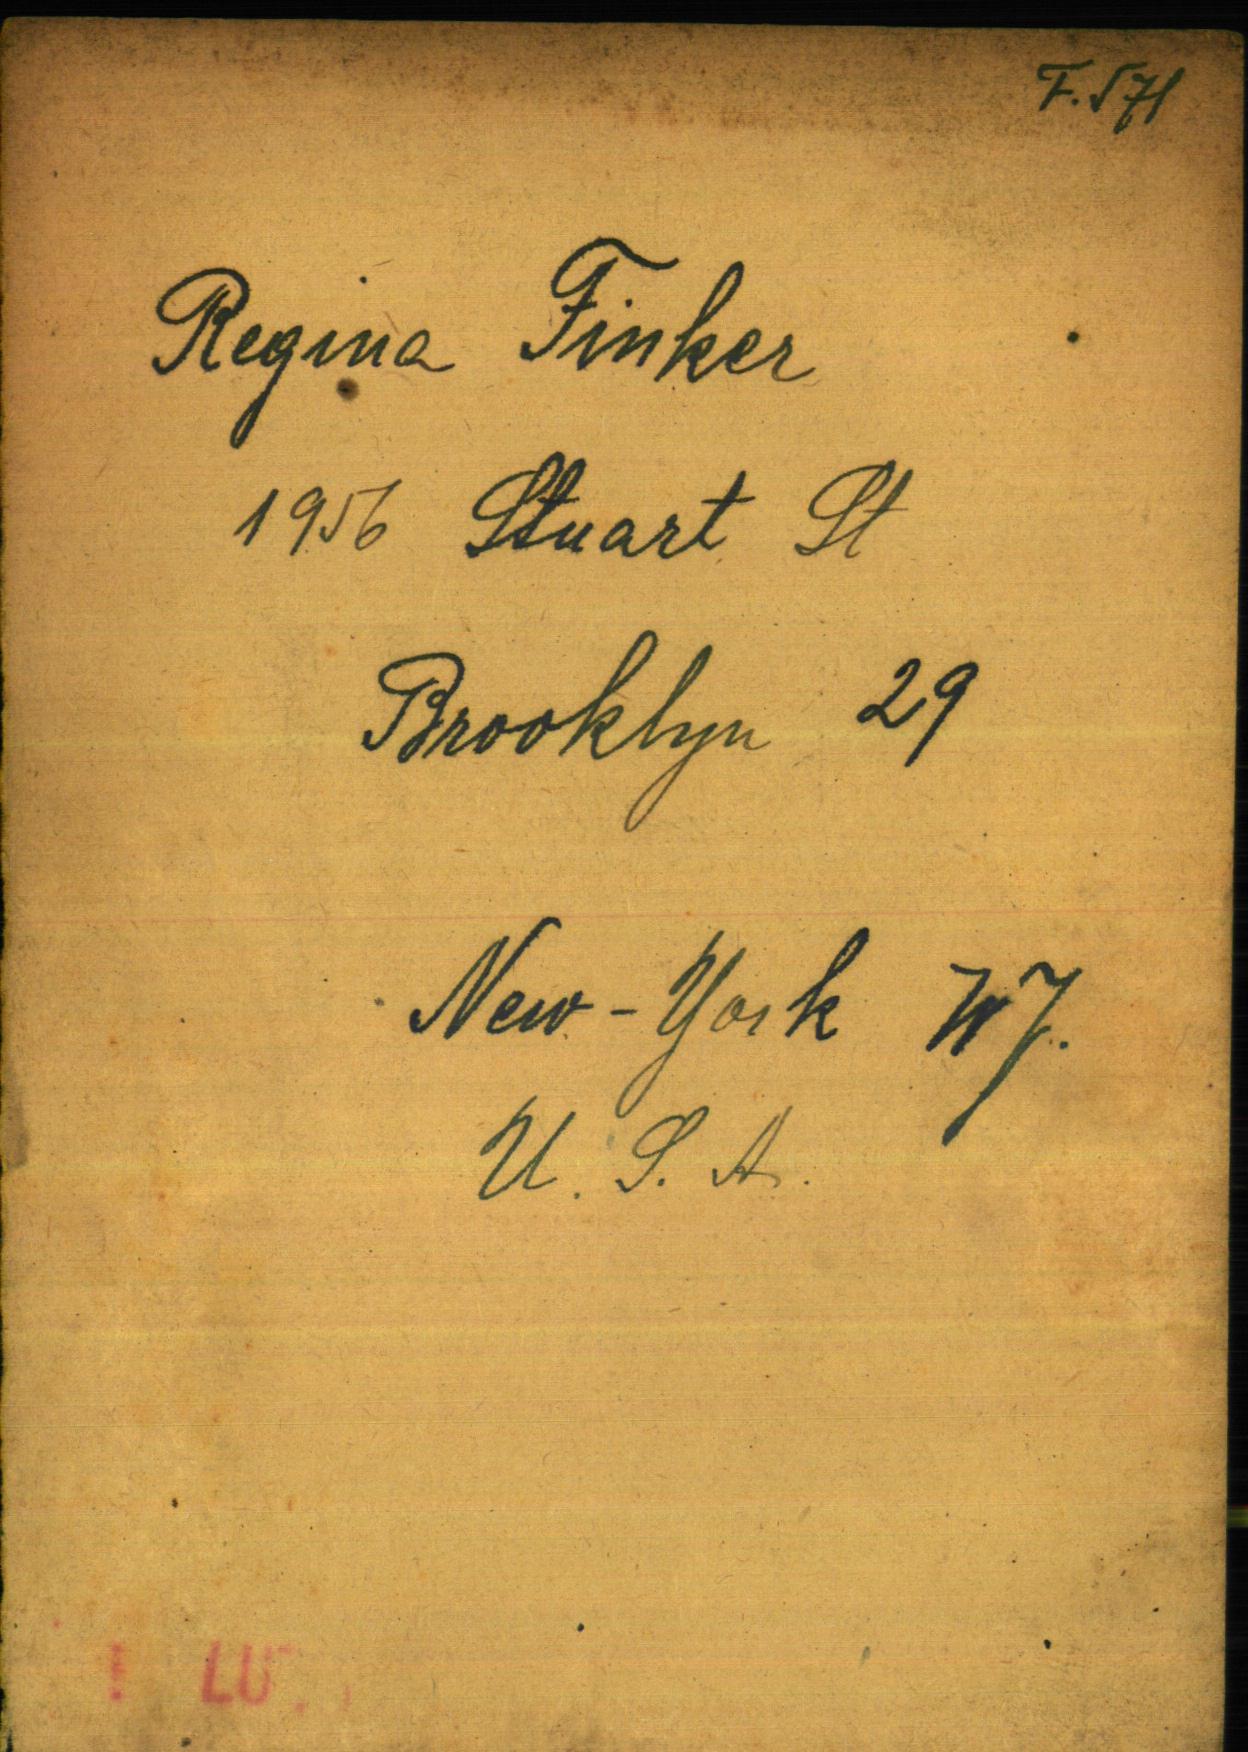 F. 571
Regina Finker
1956 Stuart St
Brooklyn 29
New-York
U. S. A.
LU